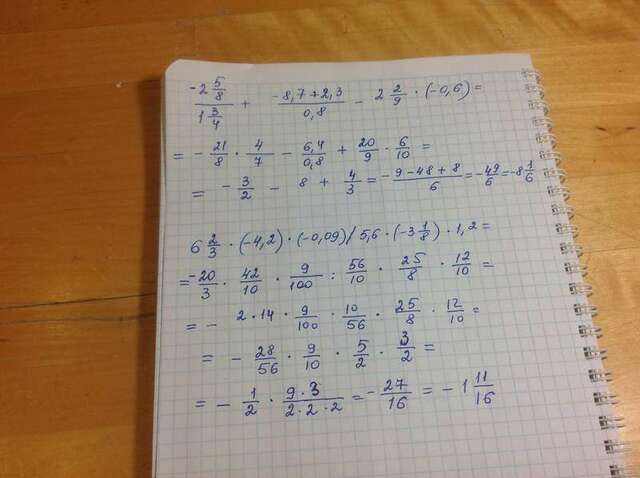 -2 5/8 / 1 3/4 + -8,7+2,3 / 0,8 - 2 2/9 · (-0,6) =
= - 21/8 · 4/7 - 6,4/0,8 + 20/9 · 6/10 =
= - 3/2 - 8 + 4/3 = -9-48+8/6 = -49/6 = -8 1/6
6 2/3 · (-4,2) · (-0,09) / 5,6 · (-3 1/8) · 1,2 =
= -20/3 · 42/10 · 9/100 : 56/10 · 25/8 · 12/10 =
= - 2·14 · 9/100 · 10/56 · 25/8 · 12/10 =
= - 28/56 · 9/10 · 5/2 · 3/2 =
= - 1/2 · 9·3/2·2·2 = - 27/16 = - 1 11/16